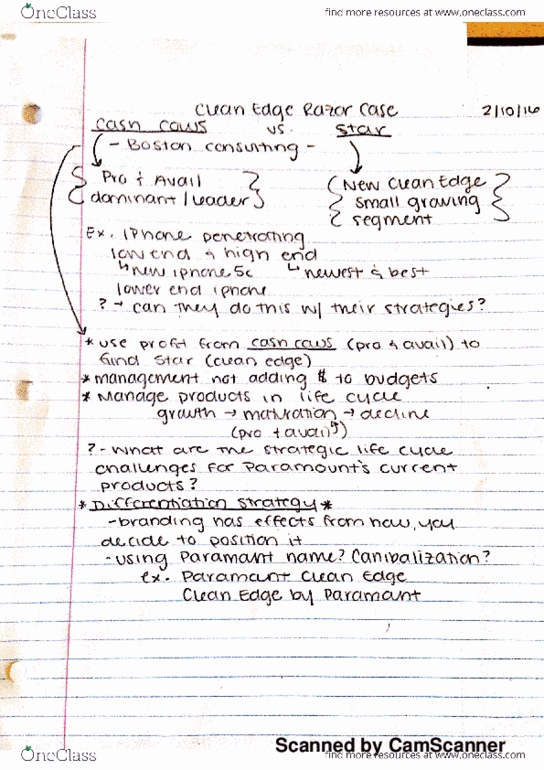 OneClass
find more resources at www.oneclass.com
Clean Edge Razor Case 2/10/16
cash cows vs. Star
- Boston consulting -
Pro & Avail
dominant / leader
New Clean Edge
small growing
segment
Ex. iPhone penetrating
low end & high end
↳ new iphone 5c ↳ newest & best
lower end iphone
? → can they do this w/ their strategies?
* use profit from cash cows (pro & avail) to
find star (clean edge)
* management not adding $ to budgets
* Manage products in life cycle
growth → maturation → decline
(pro + avail)
? - What are the strategic life cycle
challenges for Paramount's current
products?
* Differentiation strategy *
- branding has effects from how you
decide to position it
- using Paramant name? Canibalization?
ex. Paramant Clean Edge
Clean Edge by Paramant
Scanned by CamScanner
OneClass
find more resources at www.oneclass.com